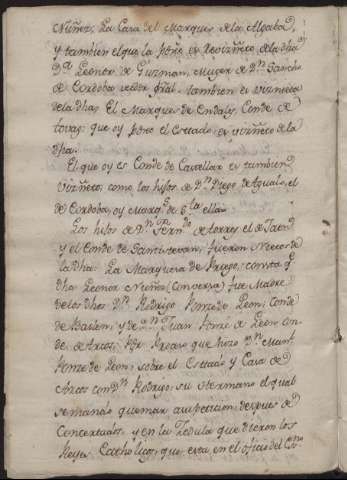 Nuñez, La Casa del Marques de la Algaba,
y tambien el que la heredo es Revizñeto, de la dha
D.ª Leonor de Guzman, Muger de D.n Sancho
de Cordoba, tambien es vizñieta
de la dha. El Marques de Conde de
tovas: que oy heredo el Estado es vizñeto de la
dha.
El que oy es Conde de Casellar es tambien
vizñeto, como los hijos de D.n Diego de Aguaio, el
de Cordoba, oy Marq.s de S.ta ella
Los hijos de D.n Fern.do de torres el de Jaen
y el Conde de Santistevan, fueron Nietos de
la dha. La Marquesa de Priego, consta q.e
dha Leonor Nuñez (Conversa) fue Madre
de los dhos D.n Rodrigo Ponze de Leon, Conde
de Bailen, y de D.n Juan Ponze de Leon, Con
de de Arcos, Por Proceso que hizo D.n Man.l
Ponze de Leon, sobre el Estado y Casa de
Arcos con D.n Rodrigo, su Hermano el qual
se mandó quemar a supeticion, despues de
Concertados, y en la Zedula que dieron los
Reyes Catholicos, que esta en el oficio del